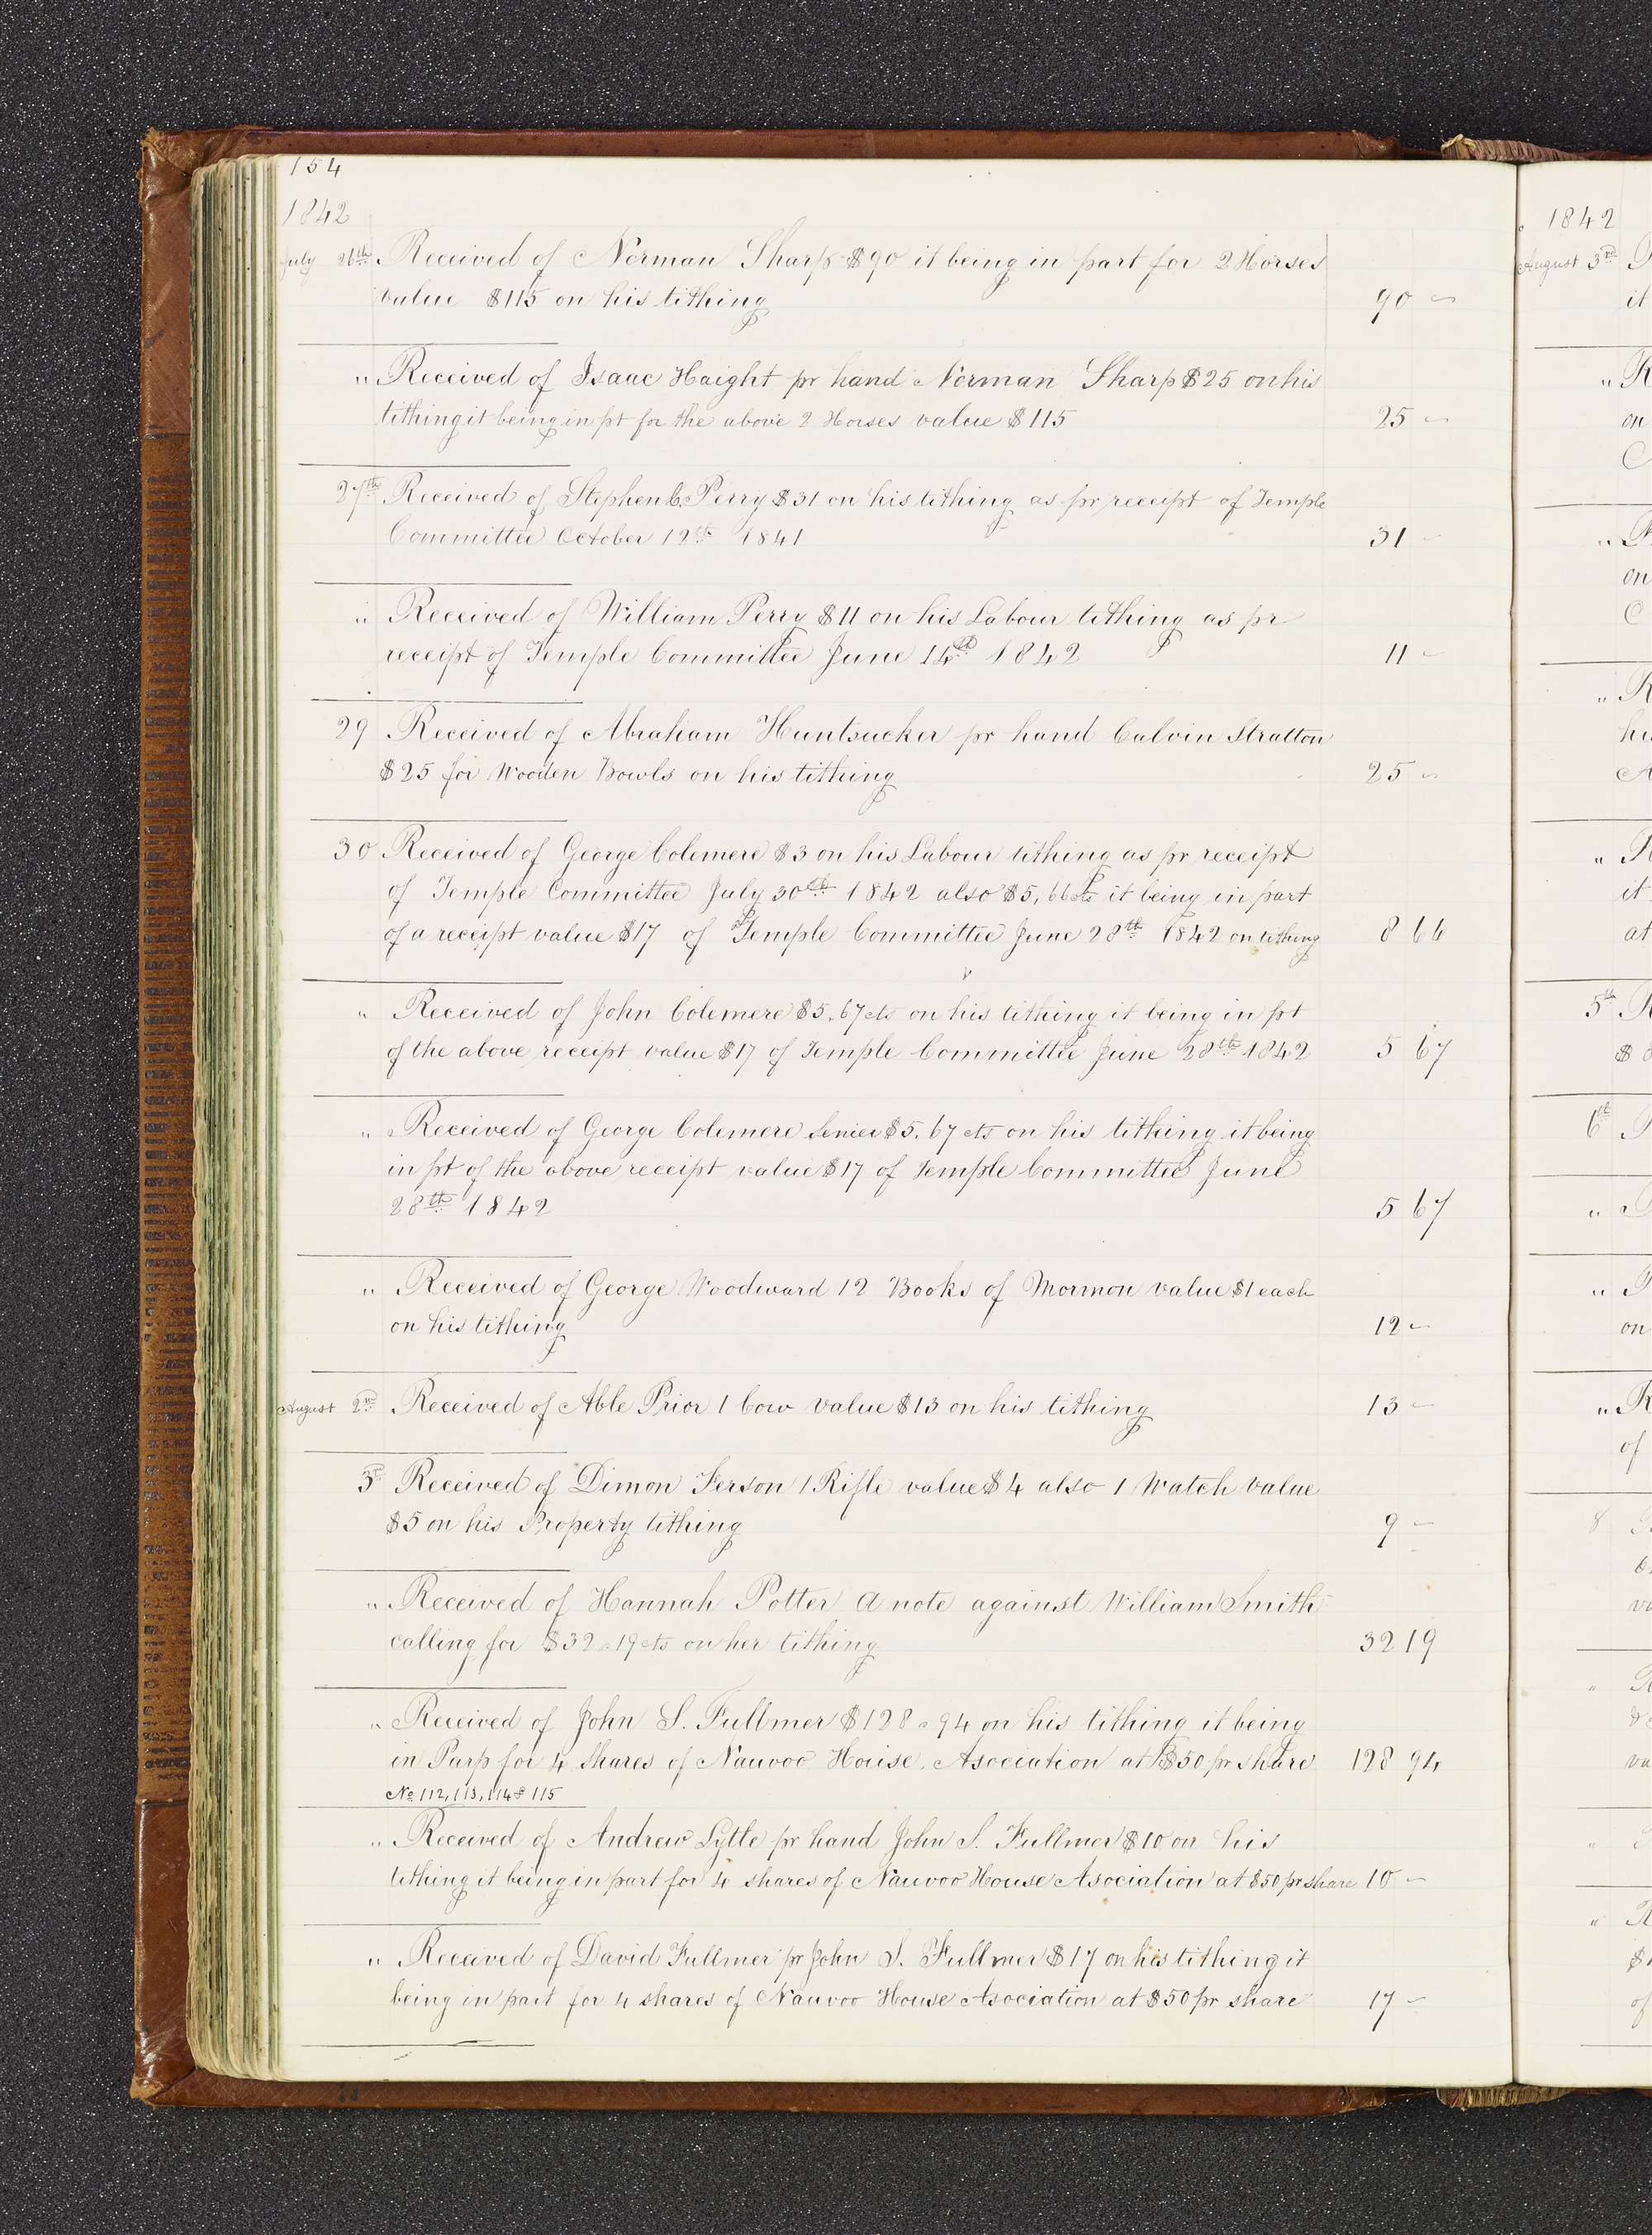 154
1842
July 26th Received of Norman Sharp $90 it being in part for 2 Horses
value $115 on his tithing 90 -
" Received of Isaac Haight pr hand Norman Sharp $25 on his
tithing it being in pt for the above 2 Horses value $115 25 -
27th Received of Stephen C. Perry $31 on his tithing as pr receipt of Temple
Committee October 12th 1841 31 -
" Received of William Perry $11 on his Labour tithing as pr
receipt of Temple Committee June 14th 1842 11 -
29 Received of Abraham Huntsucker pr hand Calvin Stratton
$25 for Wooden Bowls on his tithing 25 -
30 Received of George Colemere $3 on his Labour tithing as pr receipt
of Temple Committee July 30th 1842 also $5,66cts it being in part
of a receipt value $17 of Temple Committee June 28th 1842 on tithing 8 66
" Received of John Colemere $5.67cts on his tithing it being in pt
of the above receipt value $17 of Temple Committee June 28th 1842 5 67
" Received of George Colemere Senier $5.67cts on his tithing it being
in pt of the above receipt value $17 of Temple Committee June
28th 1842 5 67
" Received of George Woodward 12 Books of Mormon value $1 each
on his tithing 12 -
August 2nd Received of Able Prior 1 Cow value $13 on his tithing 13 -
3rd Received of Dimon Ferson 1 Rifle value $4 also 1 Watch value
$5 on his Property tithing 9 -
" Received of Hannah Potter a note against William Smith
calling for $32.19cts on her tithing 32 19
" Received of John S. Fullmer $128.94 on his tithing it being
in Parp for 4 shares of Nauvoo House Asociation at $50 pr share 128 94
No 112, 113, 114 & 115
" Received of Andrew Lytle pr hand John S. Fullmer $10 on his
tithing it being in part for 4 shares of Nauvoo House Asociation at $50 pr share 10 -
" Received of David Fullmer pr John S. Fullmer $17 on his tithing it
being in part for 4 shares of Nauvoo House Asociation at $50 pr share 17 -
1842
August 3rd
it
"
on
"
on
"
"
it
at
5th
$
6th
"
"
on
"
of
8
"
"
"
of